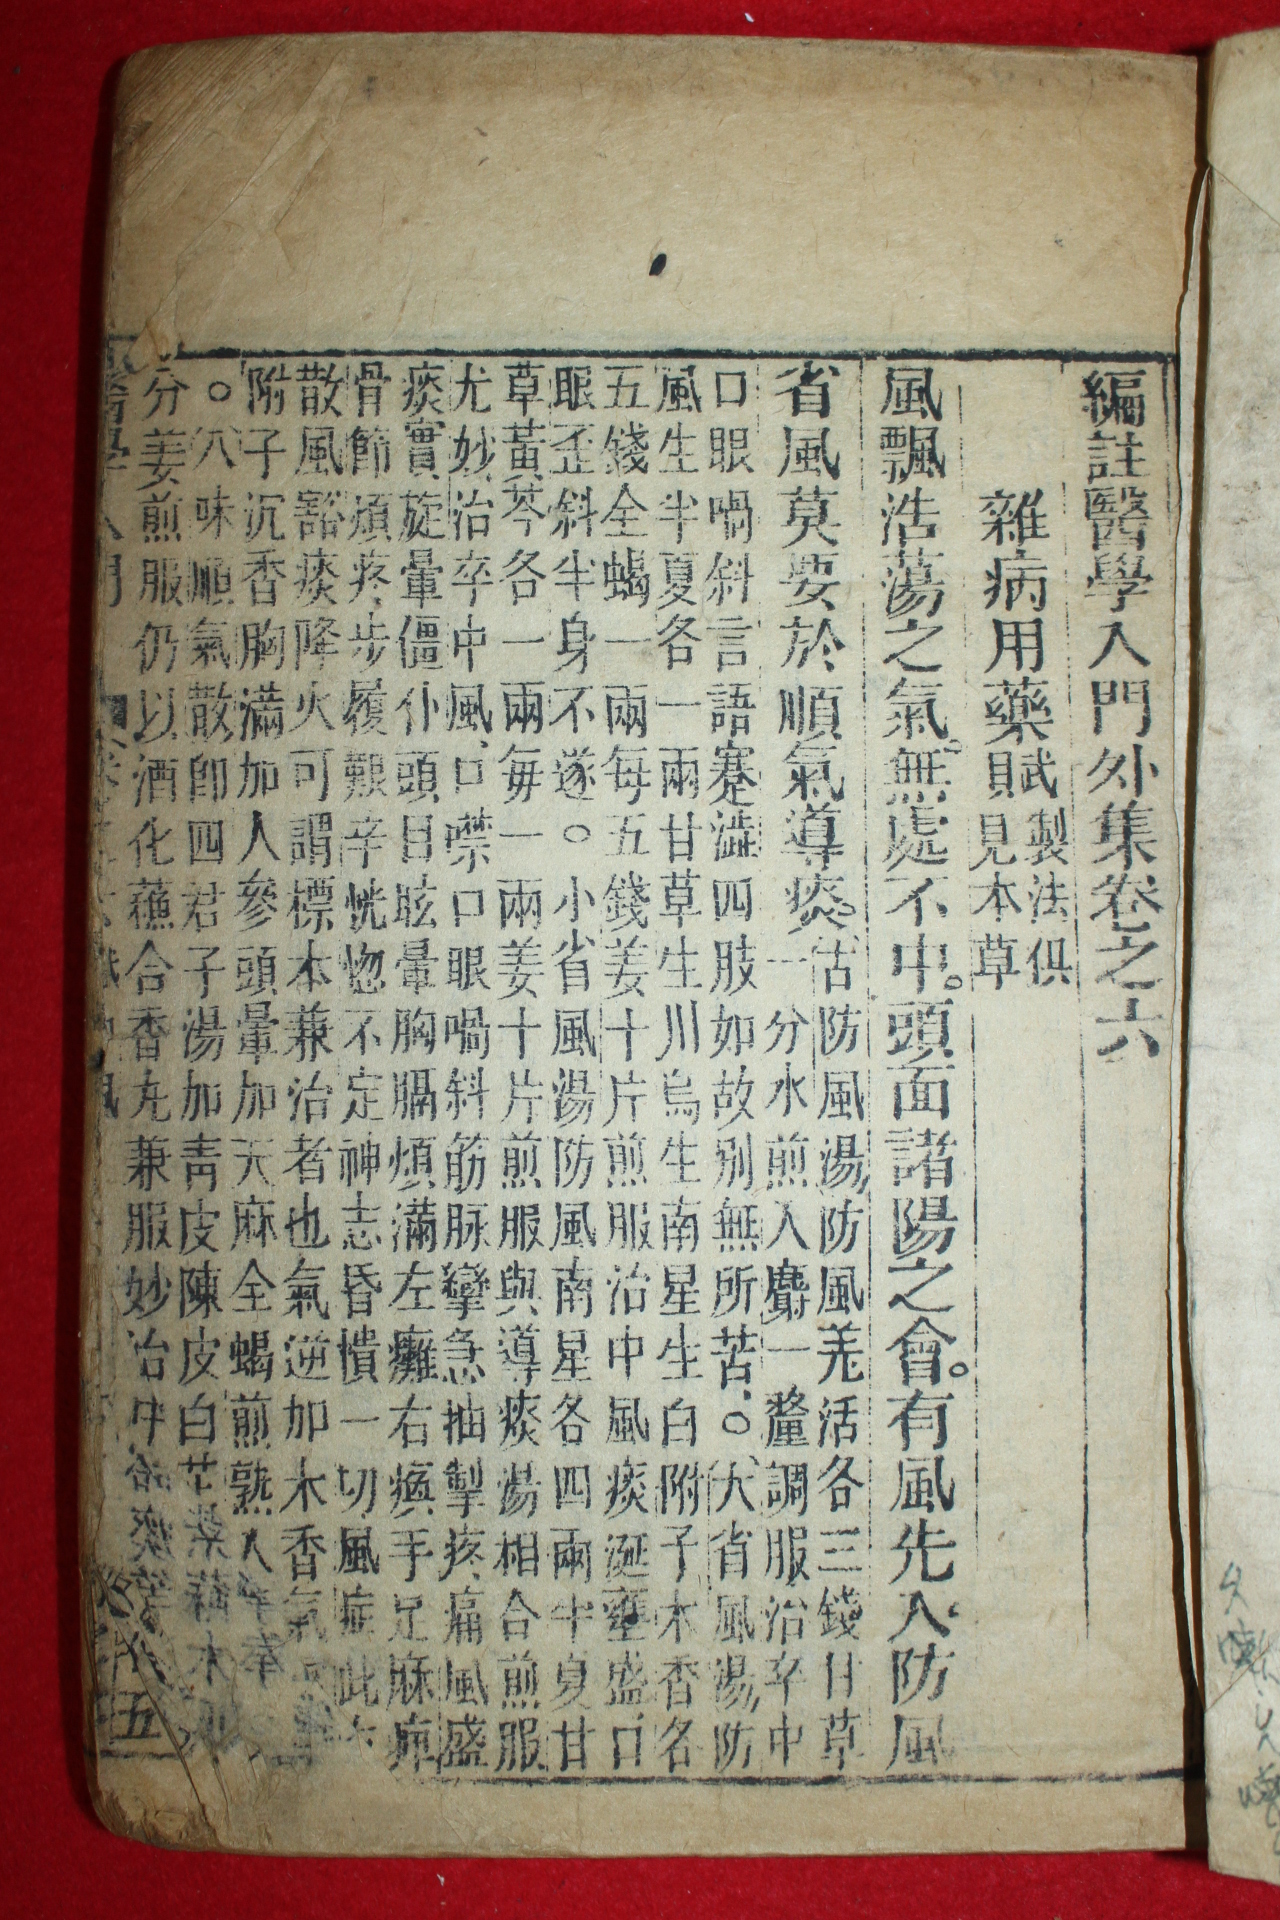 編註醫學入門外集卷之六
雜病用藥賦製法俱
見本草
風飄浩蕩之氣無處不中。頭面諸陽之會。有風先入防風
省風莫要於順氣導痰。
古防風湯防風羌活各三錢甘草
一分水煎入麝一釐調服治卒中
口眼喎斜言語蹇澁四肢如故别無所苦○大省風湯防
風生半夏各一兩甘草生川烏生南星生白附子木香各
五錢全蝎一兩每五錢姜十片煎服治中風痰涎壅盛口
眼歪斜半身不遂○小省風湯防風南星各四兩半夏甘
草黃芩各一兩每一兩姜十片煎服與導痰湯相合煎服
尤妙治卒中風口噤口眼喎斜筋脉攣急抽掣疼痛風盛
痰實旋暈僵仆頭目眩暈胸膈煩滿左癱右瘓手足麻痺
骨節煩疼步履艱辛恍惚不定神志昏憒一切風症此
散風豁痰降火可謂標本兼治者也氣逆加木香氣
附子沉香胸滿加人參頭暈加天麻全蝎煎熟入
○八味順氣散即四君子湯加青皮陳皮白芷
分姜煎服仍以酒化蘓合香丸兼服妙治中
五